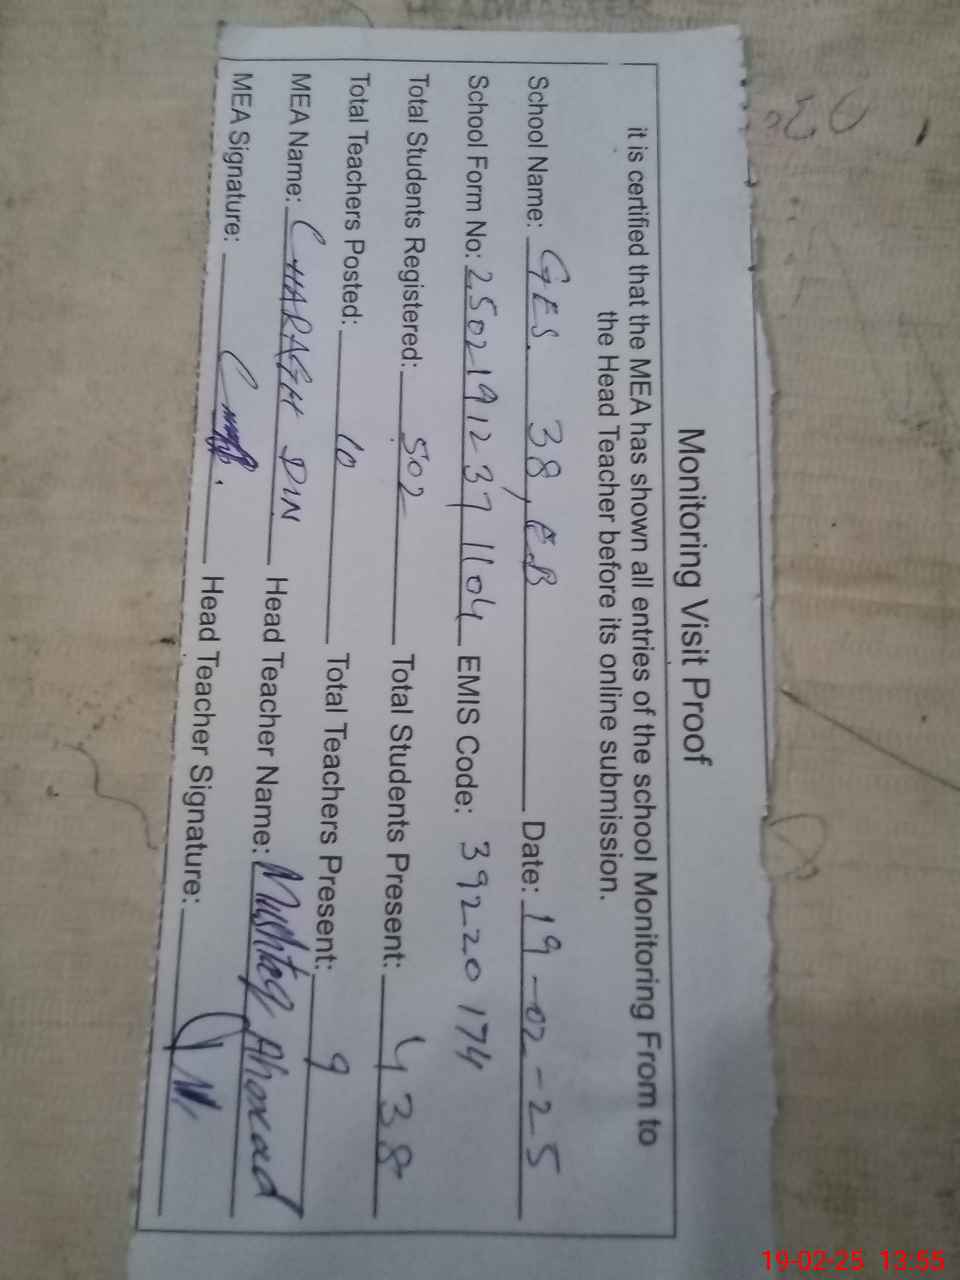 Monitoring Visit Proof
it is certified that the MEA has shown all entries of the school Monitoring From to
the Head Teacher before its online submission.
School Name: GES. 38, EB Date: 19-02-25
School Form No: 2502191237 1104 EMIS Code: 39220174
Total Students Registered: 502 Total Students Present: 438
Total Teachers Posted: 10 Total Teachers Present: 9
MEA Name: CHARAGH DIN Head Teacher Name: Mushtaq Ahmad
MEA Signature: Head Teacher Signature:
19-02-25 13:55